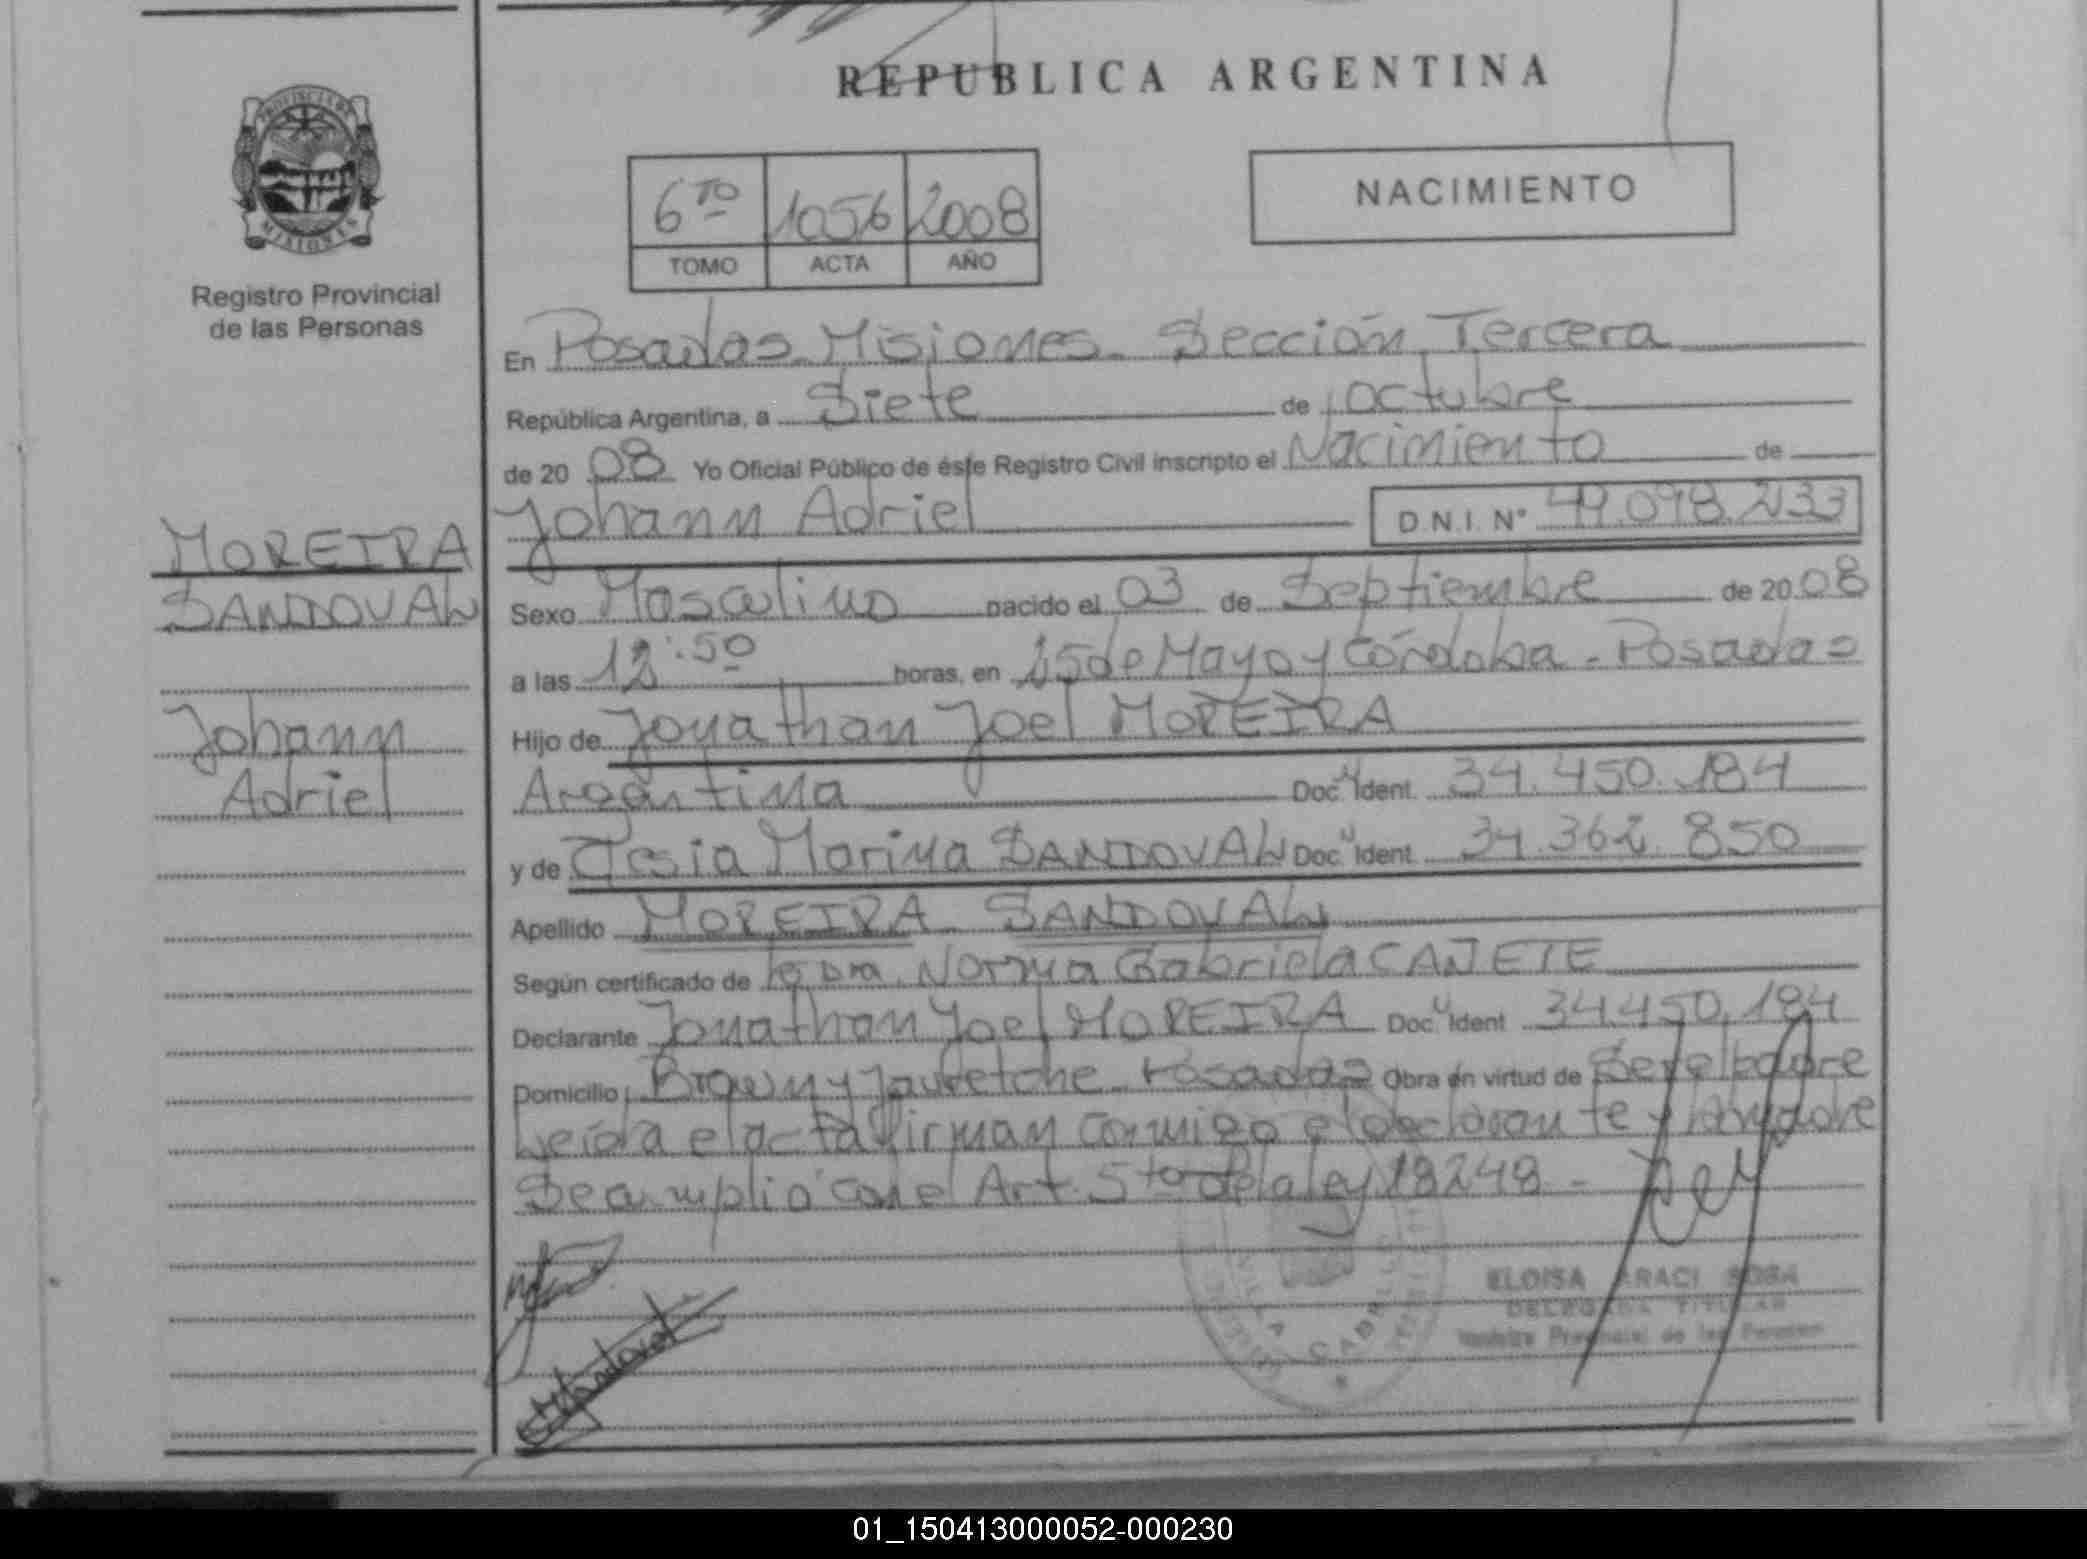 REPUBLICA ARGENTINA
PROVINCIA DE
MISIONES
Registro Provincial
de las Personas
6TO 1056 2008
TOMO ACTA AÑO
NACIMIENTO
En Posadas Misiones. Sección Tercera
República Argentina, a Siete de octubre
de 20 08 Yo Oficial Público de éste Registro Civil inscripto el Nacimiento de
Johann Adriel D.N.I. Nº 49.098.233
MOREIRA
SANDOVAL
Johann
Adriel
Sexo Masculino nacido el 03 de Septiembre de 20 08
a las 12:50 horas, en 25 de Mayo y Córdoba - Posadas
Hijo de Jonathan Joel MOREIRA
Argentina Doc. Ident. 34.450.184
y de Marina SANDOVAL Doc. Ident. 34.362.850
Apellido MOREIRA SANDOVAL
Según certificado de la Dra. Norma Gabriela CAÑETE
Declarante Jonathan Joel MOREIRA Doc. Ident. 34.450.184
Domicilio Brown y Jauretche Posadas Obra en virtud de Ser el padre
Leída el acta firman conmigo el declarante y la madre
Se cumplió con el Art. 5to de la ley 18248 -
Sandoval
ELOISA ARACI SOSA
DELEGADA TITULAR
Provincial de las Personas
VILLA CABELLO
01_150413000052-000230